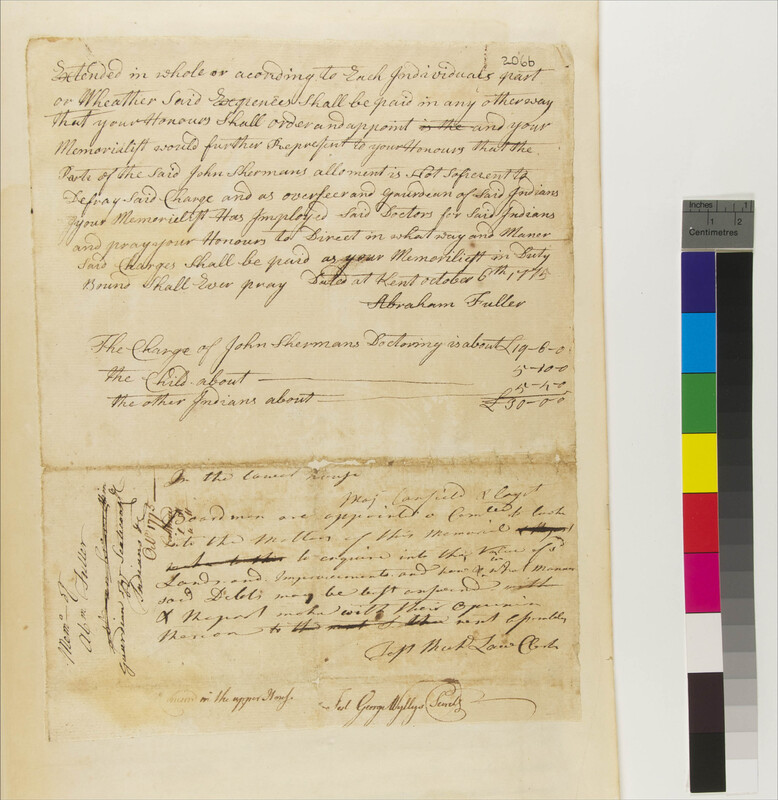 206b
Extended in whole or acording to Each Individuals part
or Wheather Said Expences Shall be paid in any other way
that your Honours Shall order and appoint in the and your
Memorialist would further Represent to your Honours that the
Parte of the said John Shermans allotment is Not Soficent to
Defray Said Charge and as overseer and Gaurdean of Said Indians
your Memorielist Has Imployed Said Doctors for Said Indians
and pray your Honours to Direct in what way and Maner
Said Charges Shall be paid as your Memorilist in Duty
Bound Shall Ever pray Dated at Kent october 6th 1775
Abraham Fuller
The Charge of John Shermans Doctoring is about £19-6-0
the Child about 5-10-0
the other Indians about 5-4-0
£30-0-0
In the Lower House
Maj Canfield & Capt
Boardman are appointed a Comtee to look
into the Matters of this Memorial
to enquire into the Value of sd
Lands and Improvements and how & in what Manner
said Debts may be best answered
& Report make with their Opinion
thereon to the next Assembly
Test Richd Law Clerk
in the upper House
Test George Wyllys Secrety
Meml of
Abm Fuller
Guardian to
Indians &c
Octr 1775